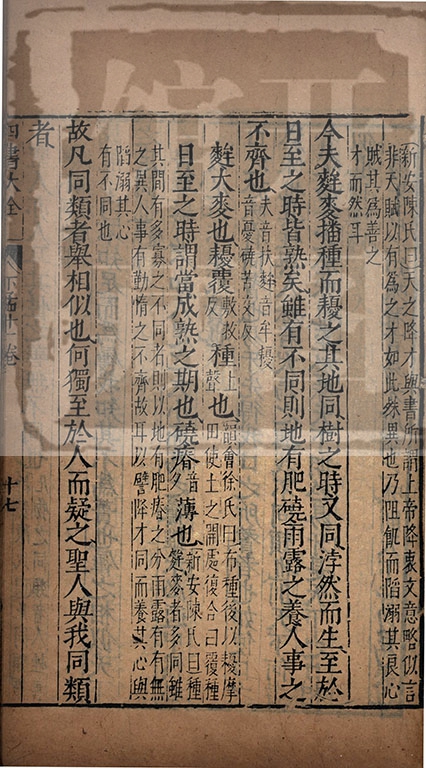 新安陳氏曰天之降才與書所謂上帝降衷文意略似言
非天賦以有為之才如此殊異也乃阻飢而陷溺其良心
賊其為善之
才而然耳
今夫麰麥播種而耰之其地同樹之時又同浡然而生至於
日至之時皆熟矣雖有不同則地有肥磽雨露之養人事之
不齊也夫音扶麰音牟耰
音憂磽苦交反
麰大麥也耰覆敷救反種上聲也韻會徐氏曰布種後以耰摩
田使土之開處復合曰覆種
日至之時謂當成熟之期也磽瘠音夕薄也新安陳氏曰種
麰麥者多同雖
其間有多寡之不同者則以地有肥瘠之分雨露有有無
之異人事有勤惰之不齊故耳以譬降才同而養其心與
陷溺其心
有不同也
故凡同類者舉相似也何獨至於人而疑之聖人與我同類
者
四書大全
卷
十七